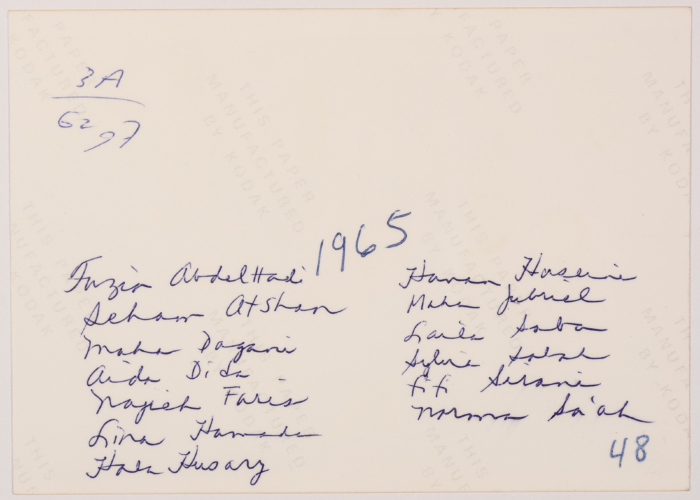 3A
62 97
1965
Fuzia AbdelHadi
Seham Atshan
Maha Dagani
Aida Dida
Najieh Faris
Lina Hamada
Hala Husary
Hanan Huseini
Maha Jubriel
Laila Saba
Sylvia Salah
Fifi Sirani
Norma Sa'ah
48
THIS PAPER
MANUFACTURED
BY KODAK